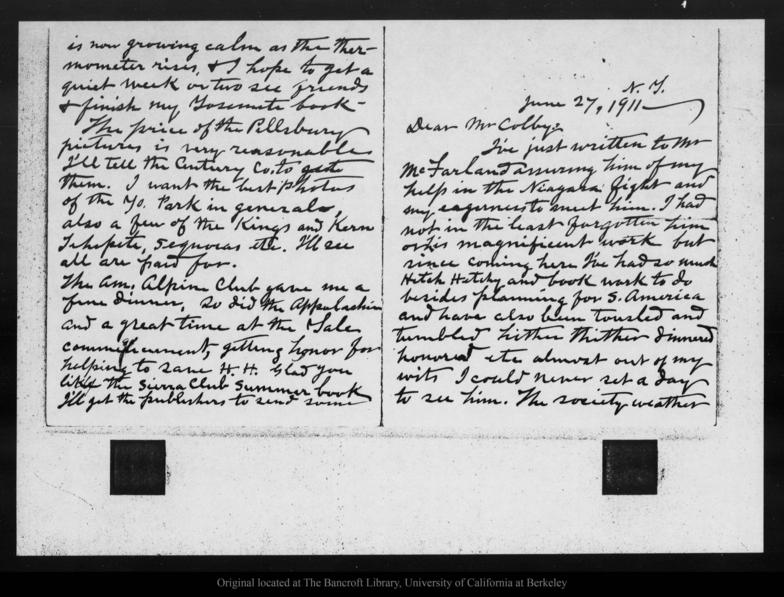 N. Y.
June 27, 1911
Dear Mr Colby:
I've just written to Mr
McFarland assuring him of my
help in the Niagara fight and
my eagerness to meet him. I had
not in the least forgotten him
or his magnificent work but
since coming here I've had so much
Hetch Hetchy and book work to do
besides planning for S. America
and have also been tousled and
tumbled hither thither dinnered
honored etc almost out of my
wits I could never set a day
to see him. The society weather
is now growing calm as the ther-
mometer rises, & I hope to get a
quiet week or two see friends
& finish my Yosemite book -
The price of the Pillsbury
pictures is very reasonable
I'll tell the Century Co. to
them. I want the best photos
of the Yo. Park in general,
also a few of the Kings and Kern
Tehipite, Sequoias etc. I'll see
all are paid for.
The Am. Alpine Club gave me a
fine dinner, so did the Appalachian
and a great time at the Yale
commencement, getting honor for
helping to save H. H. Glad you
like the Sierra Club Summer book
I'll get the publishers to send some
Original located at The Bancroft Library, University of California at Berkeley